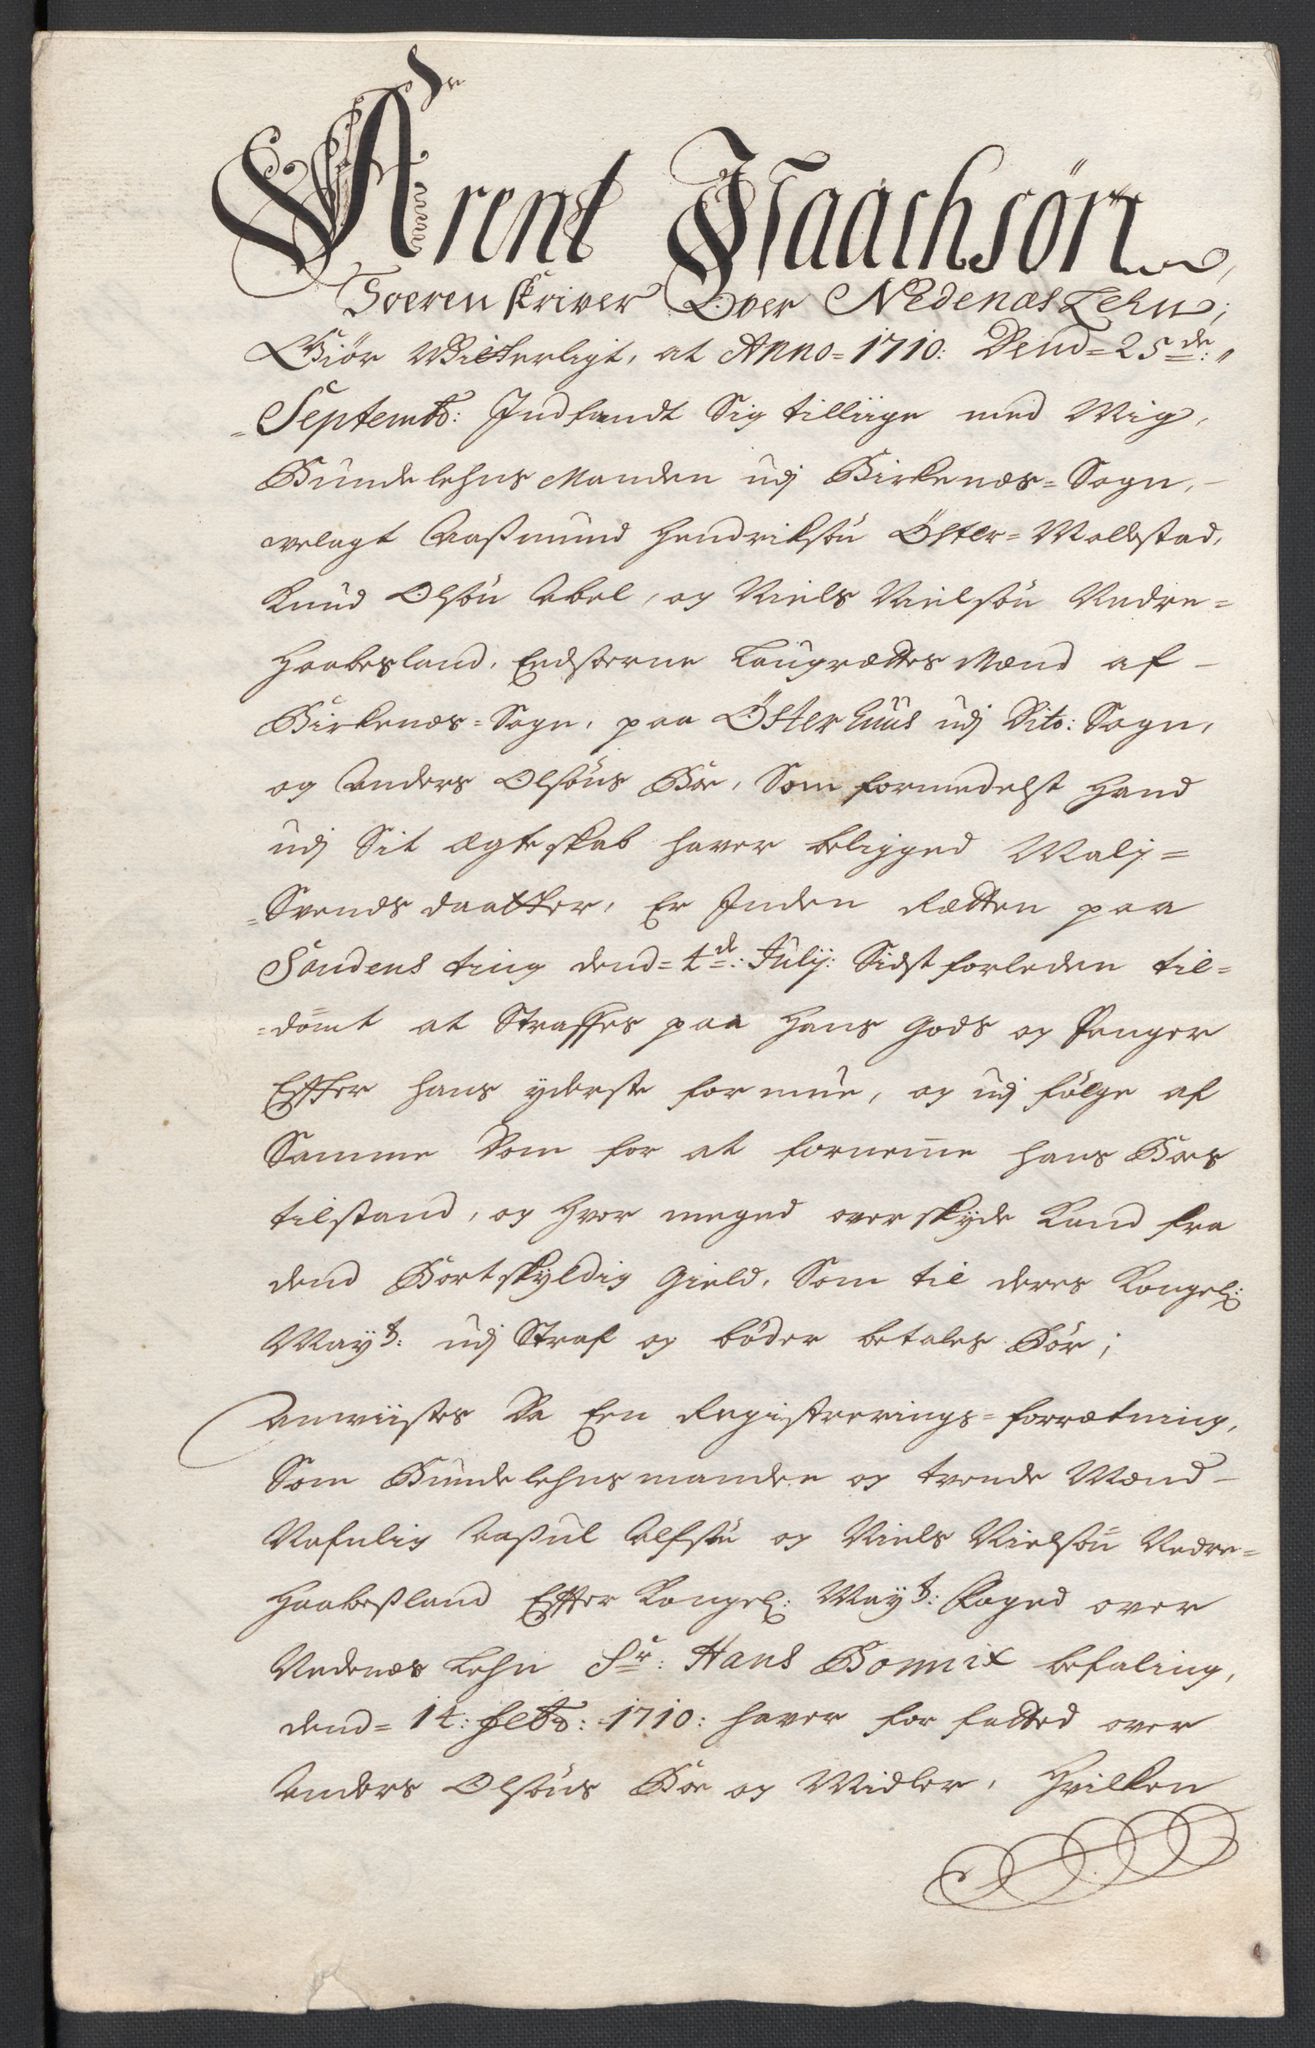 Arent Isaachsön,
Soerenskriver Over Nedenæs Lehn;
Giör Witterligt, at Anno=1710: Dend=25de:
=Septembr: Indfandt Sig tilliige med Mig,
Bundelehns Manden udj Birkenæs=Sogn,
velagt Aaßmund Hendriksön Öster=Mollestad,
Knud Olsön Abel, og Niels Nielsön Nedre=
Haabesland, Eedsorne Laugrættes Mænd af
Birkenæs=Sogn, paa Österhuus udj Dito: Sogn,
og Anders Olsöns Boe, Som formedelst Hand
udj Sit Ægteskab haver beligged Malj=
=Svends daatter, Er Inden Rætten paa
Sandens ting dend=4de: Julij: Sidstforleden til=
=dömt at Straffes paa Hans Gods og Penger
Efter hans yderste formue, og udj fölge af
Samme Dom for at forneme hans Boes
tilstand, og Hvor meged overskyde Kand fra
dend Bortskyldig Gield, Som til deres Kongel:
Mayt: udj Straf og böder betales Bör;
Anwiistes Da Een Registrerings=forrætning,
Som Bundelehnsmanden og tvende Mænd
Nafnlig Aaßul Alfsön og Niels Nielsön Nedre=
Haabeßland Efter Kongel: Mayt: Foged over
Nedenæs Lehn Sr: Hans Bommix befaling,
dend= 14: Febr: 1710: haver forfatted over
Anders Olsöns Boe og Midler, Hvilken